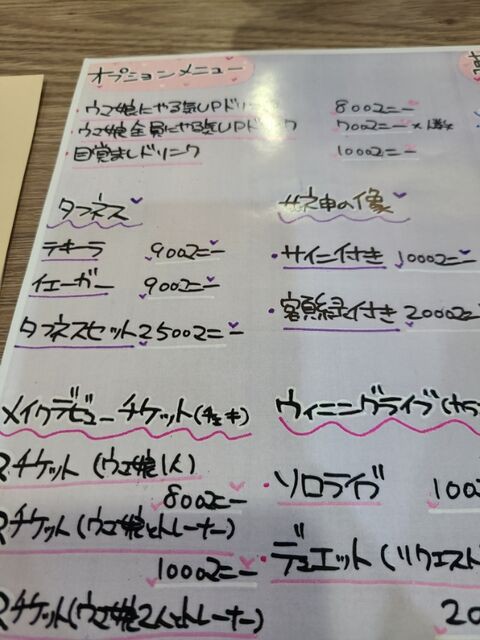 オプションメニュー
・ウマ娘にやる気UPドリンク 800マニー
・ウマ娘全員にやる気UPドリンク 700マニー×人数
・目覚ましドリンク 1000マニー
タフネス
テキーラ 900マニー
イエーガー 900マニー
タフネスセット 2500マニー
女神の像
・サイン付き 1000マニー
・額縁付き 2000マニ
メイクデビューチケット(チェキ)
Rチケット(ウマ娘1人)
800マニー
Rチケット(ウマ娘とトレーナー)
1000マニー
Rチケット(ウマ娘2人とトレーナー)
ウイニングライブ(カラ
・ソロライブ 100
・デュエット(リクエスト
20